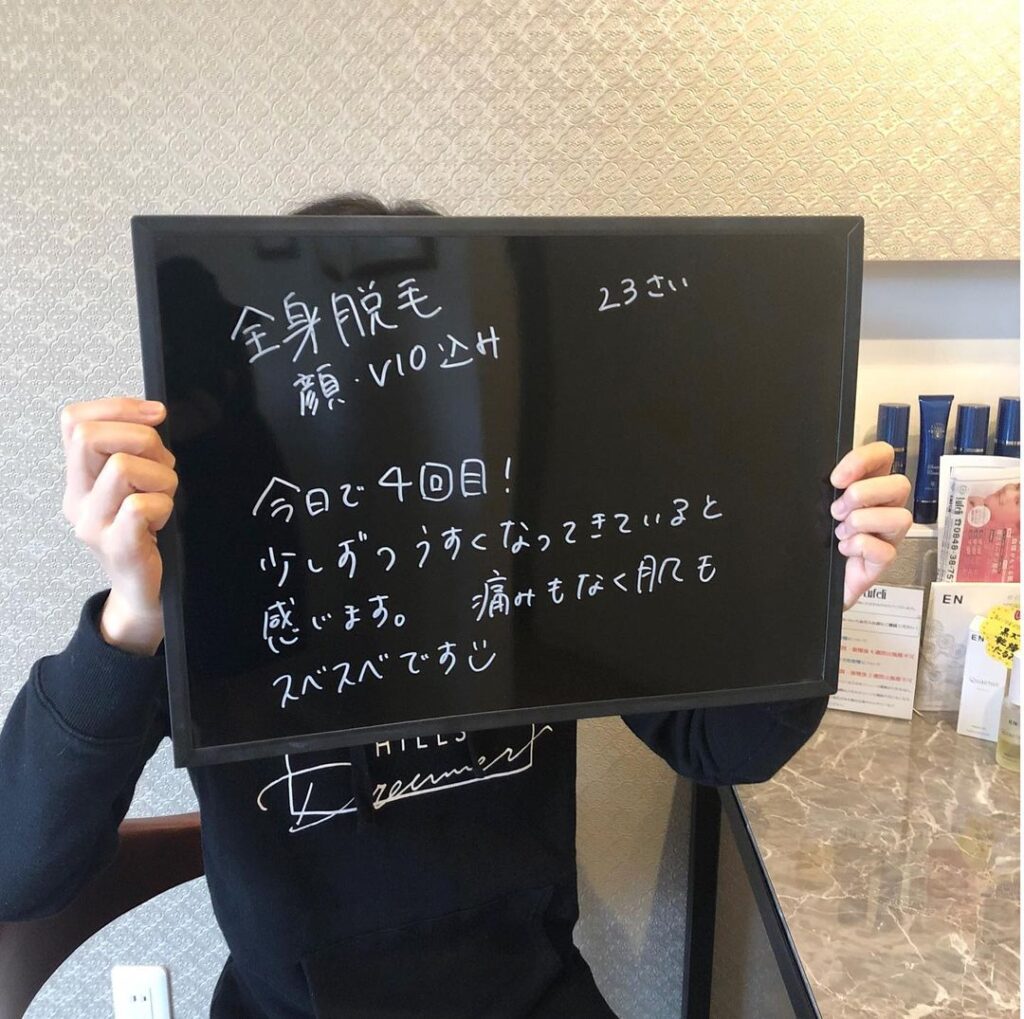 全身脱毛
23さい
顔・VIO込み
今日で4回目!
少しずつうすくなってきていると
感じます。 痛みもなく肌も
スベスベです
HILLS
EN
Quarter